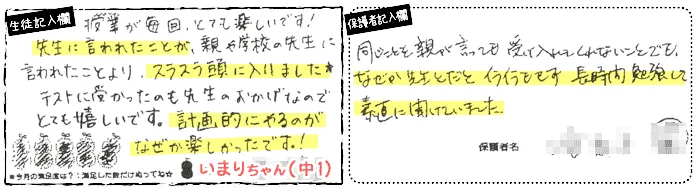 生徒記入欄
授業が毎回、とても楽しいです!
先生に言われたことが、親や学校の先生に
言われたことより、スラスラ頭に入りました★
テストに受かったのも先生のおかげなので
とても嬉しいです。計画的にやるのが
なぜか楽しかったです!
※今月の満足度は?:満足した数だけぬってね☆
いまりちゃん(中1)
保護者記入欄
同じことを親が言っても受け入れてくれないことでも、
なぜか先生とだとイライラもせず 長時間勉強して
素直に聞けていました
保護者名